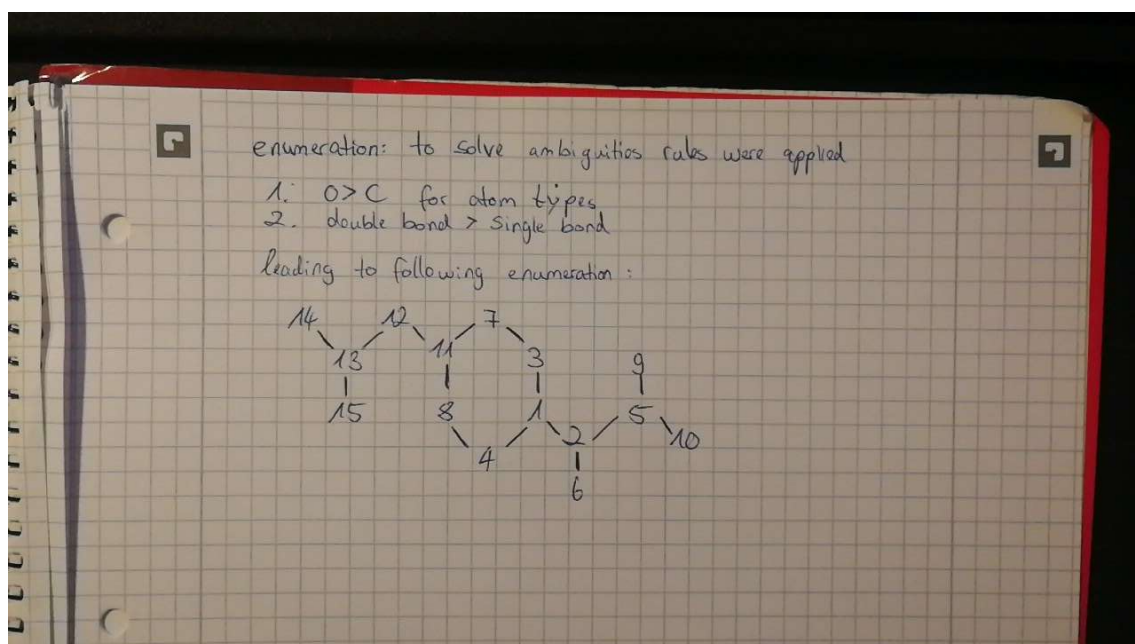 enumeration: to solve ambiguities rules were applied
1. O > C for atom types
2. double bond > single bond
leading to following enumeration :
14 12 7
13 11 3 9
15 8 1 5
4 2 10
6